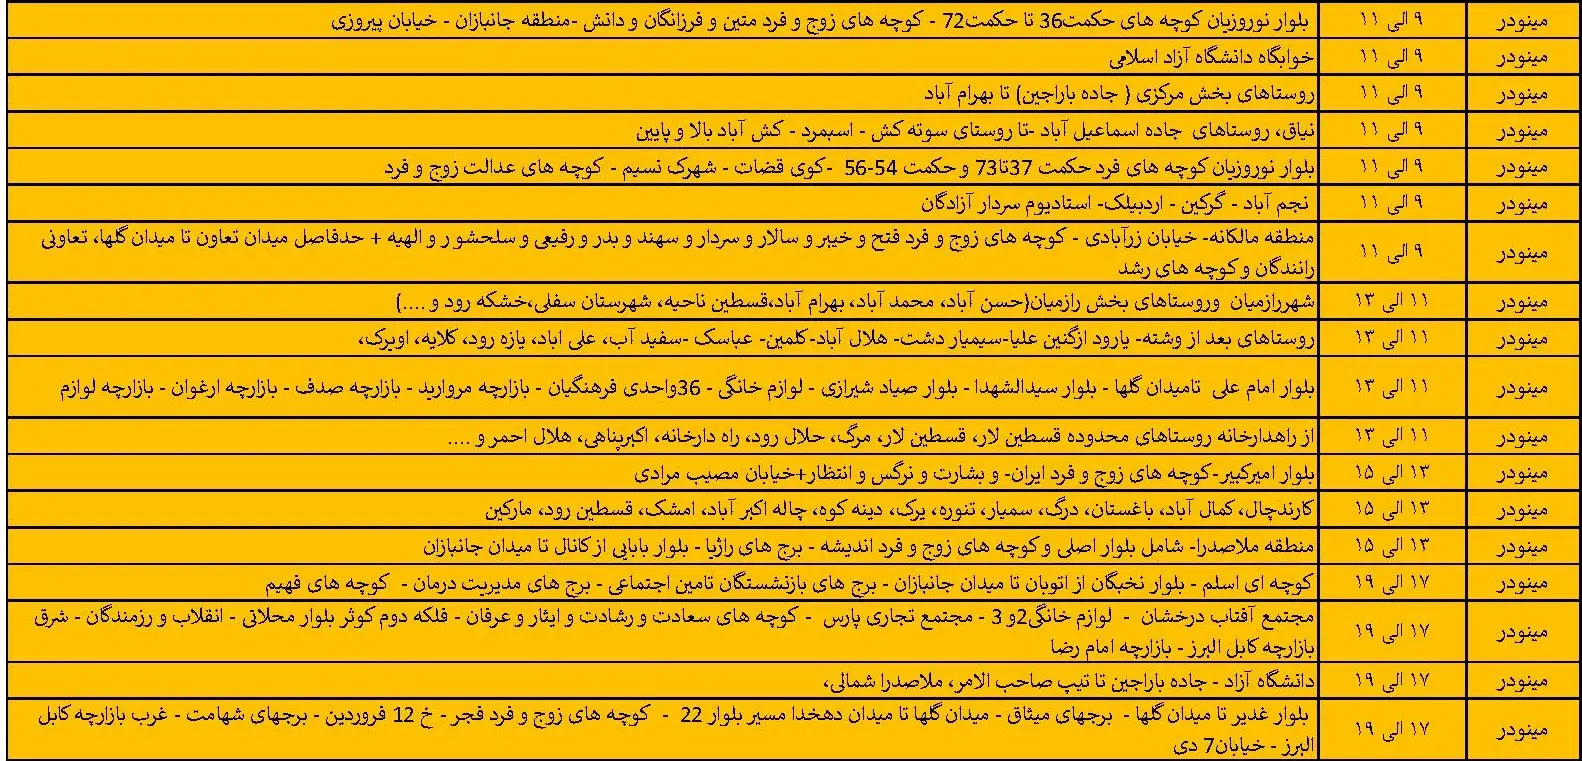 مینودر ۹ الی ۱۱ بلوار نوروزیان کوچه های حکمت36 تا حکمت72 - کوچه های زوج و فرد متین و فرزانگان و دانش -منطقه جانبازان - خیابان پیروزی
مینودر ۹ الی ۱۱ خوابگاه دانشگاه آزاد اسلامی
مینودر ۹ الی ۱۱ روستاهای بخش مرکزی ( جاده باراجین) تا بهرام آباد
مینودر ۹ الی ۱۱ نیاق، روستاهای جاده اسماعیل آباد -تا روستای سوته کش - اسبمرد - کش آباد بالا و پایین
مینودر ۹ الی ۱۱ بلوار نوروزیان کوچه های فرد حکمت 37تا73 و حکمت 54-56 -کوی قضات - شهرک نسیم - کوچه های عدالت زوج و فرد
مینودر ۹ الی ۱۱ نجم آباد - گرکین - اردبیلک- استادیوم سردار آزادگان
مینودر ۹ الی ۱۱ منطقه مالکانه- خیابان زرآبادی - کوچه های زوج و فرد فتح و خیبر و سالار و سردار و سهند و بدر و رفیعی و سلحشور و الهیه + حدفاصل میدان تعاون تا میدان گلها، تعاونی
رانندگان و کوچه های رشد
مینودر ۱۱ الی ۱۳ شهررازمیان وروستاهای بخش رازمیان(حسن آباد، محمد آباد، بهرام آباد،قسطین ناحیه، شهرستان سفلی،خشکه رود و ....)
مینودر ۱۱ الی ۱۳ روستاهای بعد از وشته- یارود ازگنین علیا-سیمیار دشت- هلال آباد-کلمین- عباسک -سفید آب، علی اباد، یازه رود، کلایه، اویرک،
مینودر ۱۱ الی ۱۳ بلوار امام علی تامیدان گلها - بلوار سیدالشهدا - بلوار صیاد شیرازی - لوازم خانگی - 36واحدی فرهنگیان - بازارچه مروارید - بازارچه صدف - بازارچه ارغوان - بازارچه لوازم
مینودر ۱۱ الی ۱۳ از راهدارخانه روستاهای محدوده قسطین لار، قسطین لار، مرگ، حلال رود، راه دارخانه، اکبرپناهی، هلال احمر و ....
مینودر ۱۳ الی ۱۵ بلوار امیرکبیر-کوچه های زوج و فرد ایران- و بشارت و نرگس و انتظار+خیابان مصیب مرادی
مینودر ۱۳ الی ۱۵ کارندچال، کمال آباد، باغستان، درگ، سمیار، تنوره، یرک، دینه کوه، چاله اکبر آباد، امشک، قسطین رود، مارکین
مینودر ۱۳ الی ۱۵ منطقه ملاصدرا- شامل بلوار اصلی و کوچه های زوج و فرد اندیشه - برج های راژیا - بلوار بابایی از کانال تا میدان جانبازان
مینودر ۱۷ الی ۱۹ کوچه ای اسلم - بلوار نخبگان از اتوبان تا میدان جانبازان - برج های بازنشستگان تامین اجتماعی - برج های مدیریت درمان - کوچه های فهیم
مینودر ۱۷ الی ۱۹ مجتمع آفتاب درخشان - لوازم خانگی2و 3 - مجتمع تجاری پارس - کوچه های سعادت و رشادت و ایثار و عرفان - فلکه دوم کوثر بلوار محلاتی - انقلاب و رزمندگان - شرق
بازارچه کابل البرز - بازارچه امام رضا
مینودر ۱۷ الی ۱۹ دانشگاه آزاد - جاده باراجین تا تیپ صاحب الامر، ملاصدرا شمالی،
مینودر ۱۷ الی ۱۹ بلوار غدیر تا میدان گلها - برجهای میثاق - میدان گلها تا میدان دهخدا مسیر بلوار 22 - کوچه های زوج و فرد فجر - خ 12 فروردین - برجهای شهامت - غرب بازارچه کابل
البرز - خیابان7 دی